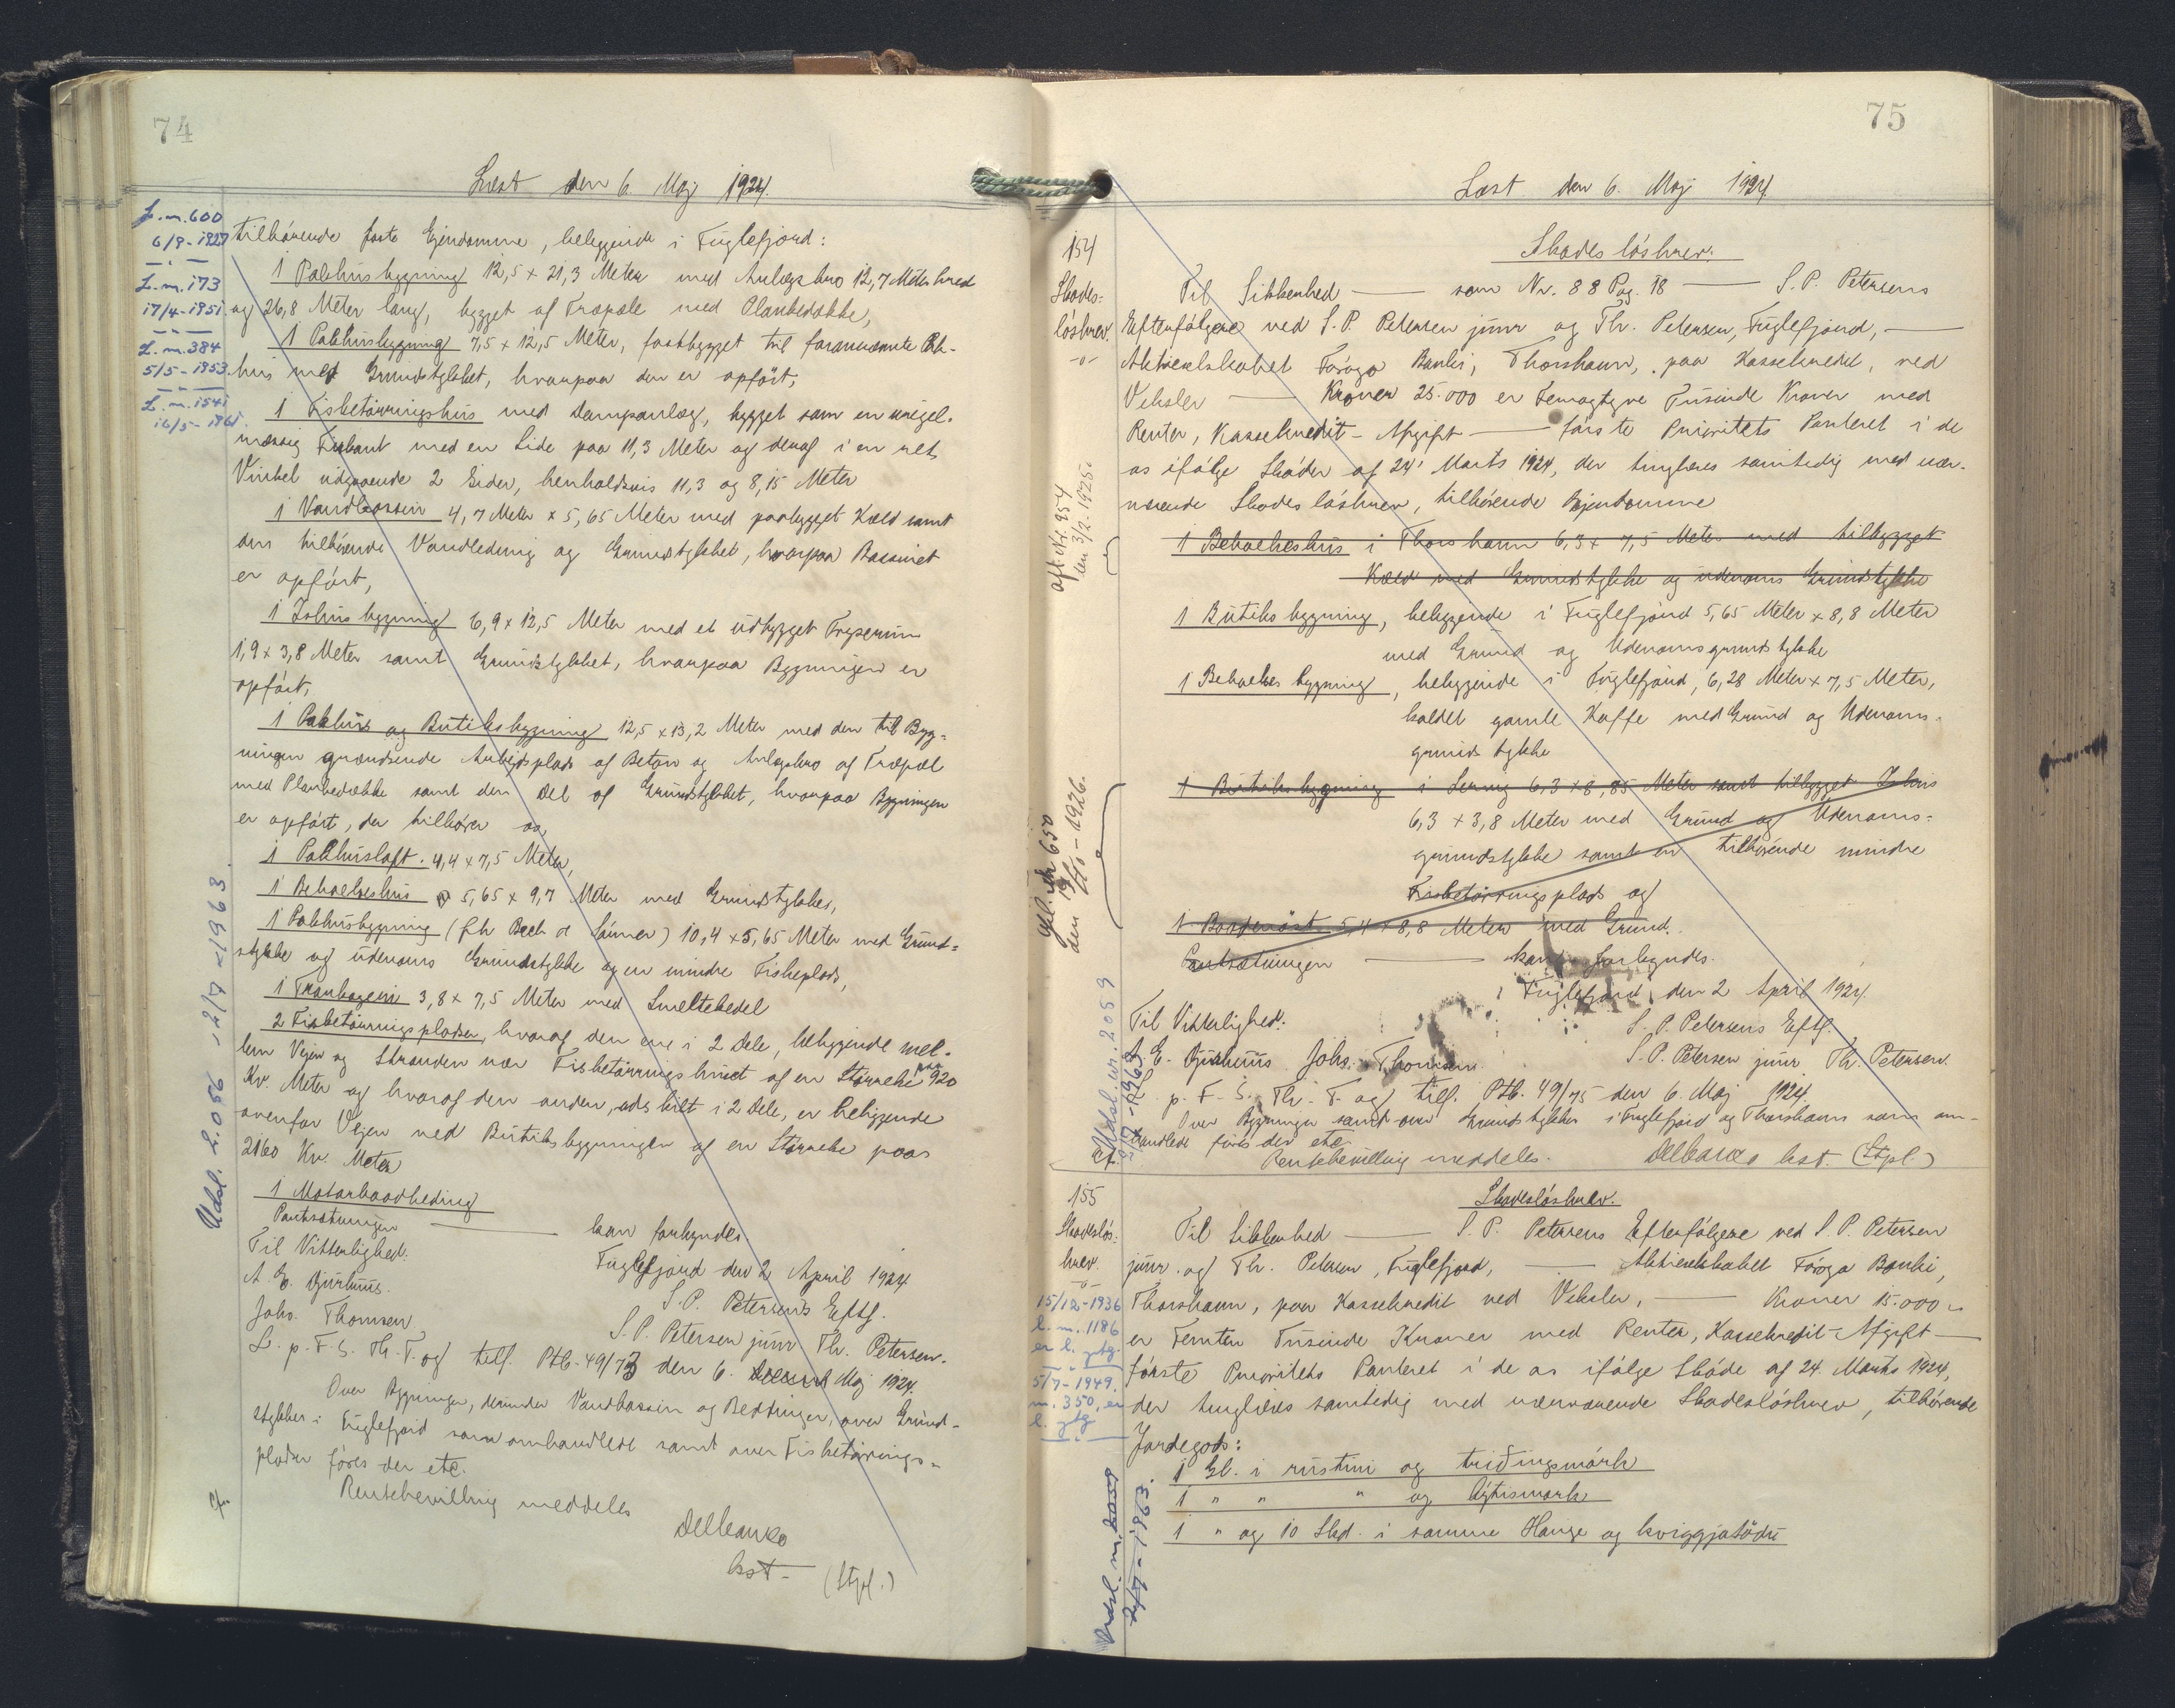 74
Læst den 6. Maj 1924.
L. m. 600
6/9-1927
L. m. 173
17/4-1951
L. m. 384
5/5-1953
L. m. 1541
16/5-1961
tilhørende faste Ejendomme, beliggende i Fuglefjord:
1 Pakhusbygning 12,5 x 21,3 Meter med Anlægsbro 12,7 Meter bred
og 26,8 Meter lang, bygget af Træpæle med Plankedække,
1 Pakhusbygning 7,5 x 12,5 Meter, fastbygget til forannævnte Pak-
hus med Grundstykket, hvorpaa den er opført,
1 Fisketørringshus med Dampanlæg, bygget som en uregel-
mæssig Firkant med en Side paa 11,3 Meter og deraf i en ret
Vinkel udgaaende 2 Sider, henholdsvis 11,3 og 8,15 Meter
1 Vandbassin 4,7 Meter x 5,65 Meter med paabygget Kæld samt
den tilhørende Vandledning og Grundstykket, hvorpaa Bassinet
er opført,
1 Ishusbygning 6,9 x 12,5 Meter med et udbygget Fryserum
1,9 x 3,8 Meter samt Grundstykket, hvorpaa Bygningen er
opført,
1 Pakhus og Butiksbygning 12,5 x 13,2 Meter med den til Byg-
ningen grændsende Arbejdsplads af Beton og Anlægsbro af Træpæl
med Plankedække samt den Del af Grundstykket, hvorpaa Bygningen
er opført, der tilhører os,
1 Pakhusloft. 4,4 x 7,5 Meter,
1 Beboelseshus 5,65 x 9,7 Meter med Grundstykker,
1 Pakhusbygning (fh Bech & Sønner) 10,4 x 5,65 Meter med Grund-
stykke og udenoms Grundstykke og en mindre Fiskeplads,
1 Tranbageri 3,8 x 7,5 Meter med Smeltekedel
2 Fisketørringspladser, hvoraf den ene i 2 Dele, beliggende mel-
lem Vejen og Stranden nær Fisketørringshuset af en Størrelse paa 920
Kv. Meter og hvoraf den anden, adskilt i 2 Dele, er beliggende
ovenfor Vejen ved Butiksbygningen af en Størrelse paa
2160 Kv. Meter
1 Motorbaadbeding
Pantsætningen — kan forkyndes
Til Vitterlighed. Fuglefjord den 2 April 1924
A. E. Djurhuus. S. P. Petersens Eftf.
Johs. Thomsen S. P. Petersen junr Th. Petersen.
L. p. F. S. Th. T. og tilf. Ptb. 49/73 den 6. Maj 1924.
Over Bygninger, derunder Vandbassin og Bedtinger, over Grund-
stykker i Fuglefjord som omhandlede samt over Fisketørrings-
pladser føres der etc.
Rentebevilling meddeles
Delbanco
kst- (Stpl.)
Udsl. L. 2056 12/7-1963
75
Læst den 6. Maj 1924
154
Skades-
løsbrev.
Skadesløsbrev.
Til Sikkerhed — som Nr. 88 Pag. 18 — S. P. Petersens
Efterfølgere ved S. P. Petersen junr og Th. Petersen, Fuglefjord, —
Aktieselskabet Føroya Banki, Thorshavn, paa Kassekredit, ved
Veksler — Kroner 25.000 er Femogtyve Tusinde Kroner med
Renter, Kassekredit-Afgift — første Prioritets Panteret i de
os ifølge Skøder af 24' Marts 1924, der tinglæses samtidig med nær-
værende Skadesløsbrev, tilhørende Ejendomme
1 Beboelseshus i Thorshavn 6,3 x 7,5 Meter med tilbygget
Kæld med Grundstykke og udenoms Grundstykke
1 Butiksbygning, beliggende i Fuglefjord 5,65 Meter x 8,8 Meter
med Grund og Udenomsgrundstykke
1 Beboelsesbygning, beliggende i Fuglefjord, 6,28 Meter x 7,5 Meter,
kaldet gamle Kaffe med Grund og Udenoms-
grundstykke
1 Butiksbygning i Lervig 6,3 x 8,85 Meter samt tilbygget Ishus
6,3 x 3,8 Meter med Grund og Udenoms-
grundstykke samt en tilhørende mindre
Fisketørringsplads og
1 Baadenøst 5,4 x 8,8 Meter med Grund.
Pantsætningen — kan forkyndes.
Fuglefjord, den 2 April 1924.
Til Vitterlighed: S. P. Petersens Eftf.
A. E. Djurhuus Johs. Thomsen S. P. Petersen junr Th. Petersen.
L. p. F. S. Th. T. og tilf. Ptb. 49/75 den 6. Maj 1924.
Over Bygninger samt over Grundstykker i Fuglefjord og Thorshavn som om-
handlede føres der etc.
Rentebevilling meddeles. Delbanco kst. (Stpl.)
aft. Nr. 954
den 3/2-1925.
den 19/10-1926.
Udsl. nr. 2059
12/7-1963
155
Skadesløs-
brev.
15/12-1936
l. m. 1186
er l. ptg.
5/7-1949.
m. 350, er
l. ptg
Skadesløsbrev.
Til Sikkerhed — S. P. Petersens Efterfølgere ved S. P. Petersen
junr. og Th. Petersen, Fuglefjord, — Aktieselskabet Føroya Banki,
Thorshavn, paa Kassekredit ved Veksler, — Kroner 15.000
er Femten Tusinde Kroner med Renter, Kassekredit-Afgift —
første Prioritets Panteret i de os ifølge Skøde af 24. Marts 1924,
der tinglæses samtidig med nærværende Skadesløsbrev, tilhørende
Jordegods:
1 Gl. i rustini og triðingsmørk
1 " " " og býtismørk
1 " og 10 Skd. i samme Hauge og kviggjatøðu